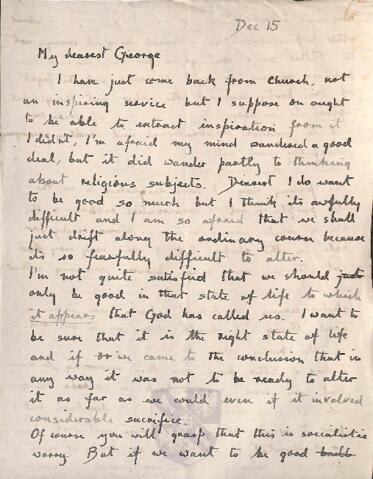 Dec 15
My dearest George
I have just come back from church, not
an inspiring service but I suppose on ought
to be able to extract inspiration from it
I didn't, I'm afraid my mind wandered a good
deal, but it did wander partly to thinking
about religious subjects. Dearest I do want
to be good so much but I think its awfully
difficult and I am so afraid that we shall
just drift along the ordinary course because
it's so fearfully difficult to alter.
I'm not quite satisfied that we should just
only be good in that state of life to which
it appears that God has called us. I want to
be sure that it is the right state of life
and if we came to the conclusion that in
any way it was not to be ready to alter
it as far as we could even if it involved
considerable sacrifice.
Of course you will grasp that this is socialistic
worry. But if we want to be good